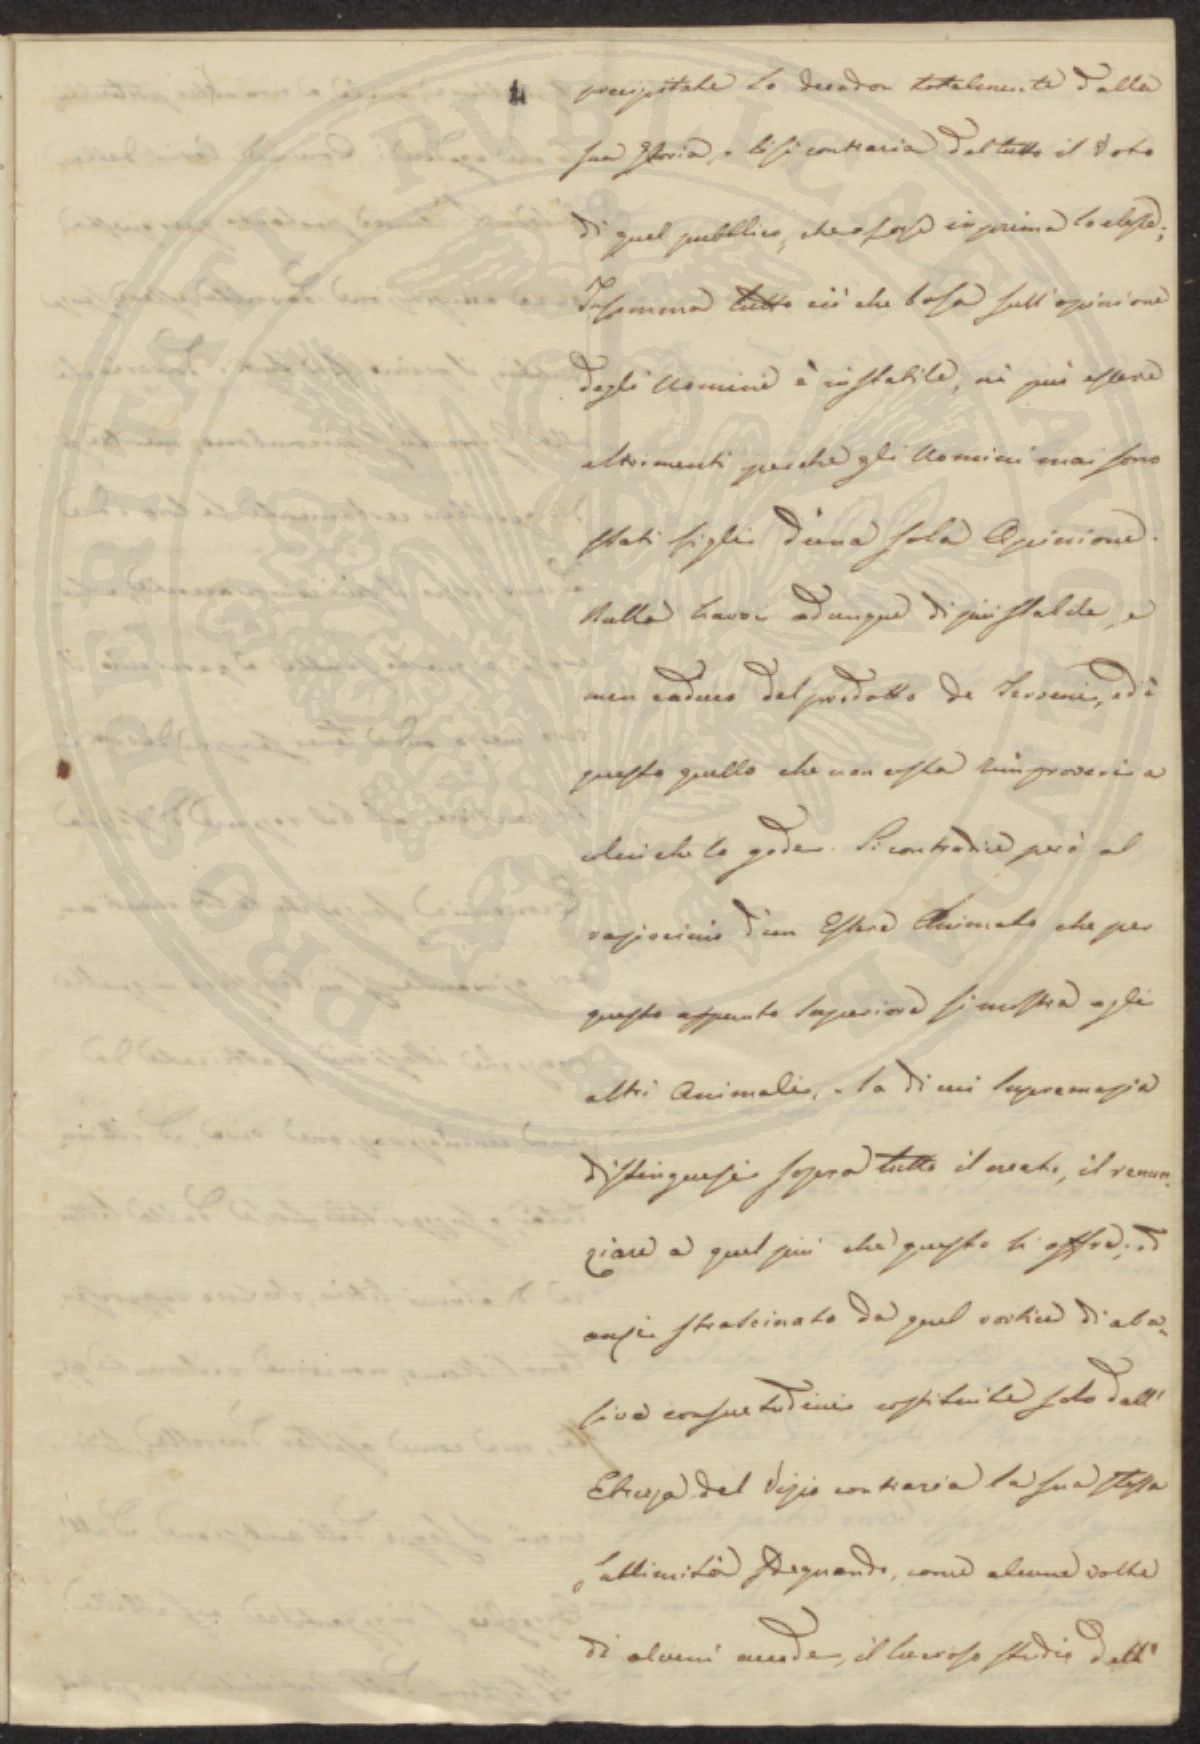 4
precipitate lo decadon totalmente dalla
sua gloria, e lisi contraria del tutto il Voto
di quel pubblico, che forse in prima lo elesse;
Insomma tutto ciò che basa sull'opinione
degli Uomini è instabile, nè può essere
altrimenti perchè gli Uomini mai sono
stati figli d'una sola Opinione.
Nulla havvi adunque di più stabile, e
men caduco del prodotto de Terreni, ed è
questo quello che non costa rimproveri a
colui che lo gode. Si contradice però al
raziocinio d'un Essere Animato che per
questo appunto Superiore si mostra agli
altri Animali, e la di cui Supremazia
distinguesi sopra tutto il creato, il renun,
ziare a quel più che questo li offre; ed
anzi strascinato da quel vortice di abu,
sive consuetudini costituite solo dall'
del Vizio contraria la sua stessa
Sublimità sdegnando, come alcune volte
di alcuni accade, il lucroso studio dell'
PROSPERITATI PVBLICAE AVGENDAE